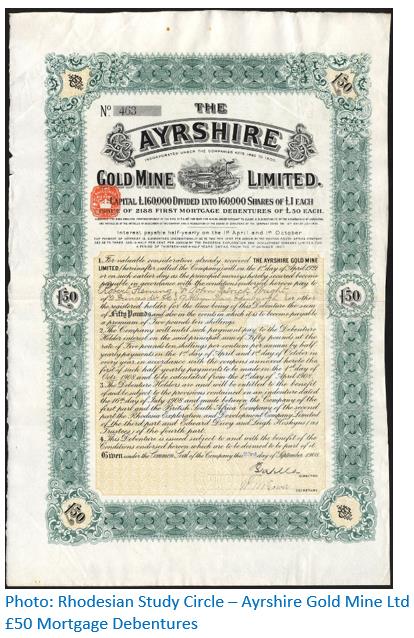 £50
£50
No 463
THE
AYRSHIRE
INCORPORATED UNDER THE COMPANIES ACTS 1862 TO 1900.
GOLD MINE LIMITED.
CAPITAL £160,000 DIVIDED INTO 160,000 SHARES OF £1 EACH
ISSUE OF 2188 FIRST MORTGAGE DEBENTURES OF £50 EACH.
Interest payable half-yearly on the 1st April and 1st October
£50
£50
1. For valuable consideration already received THE AYRSHIRE GOLD MINE
LIMITED (hereinafter called the Company) will on the 1st day of April
or on such earlier day as the principal moneys hereby secured become
payable in accordance with the conditions endorsed hereon pay to
or other
the registered holder for the time being of this Debenture the sum
of Fifty Pounds and also in the event in which it is to become payable
a premium of Two pounds ten shillings.
2. The Company will until such payment pay to the Debenture
Holder interest on the said principal sum of Fifty pounds at the
rate of Two pounds ten shillings per centum per annum by half
yearly payments on the 1st day of April and 1st day of October in
every year in accordance with the coupons annexed hereto the
first of such half yearly payments to be made on the 1st day of
Octr 1908 and to be calculated from the 1st day of April 1908.
3. The Debenture Holders are and will be entitled to the benefit
of and be subject to the provisions contained in an indenture dated
the 16th day of July 1908 and made between the Company of the
first part and the British South Africa Company of the second
part the Rhodesia Exploration and Development Company Limited
of the third part and Edward Dicey and Leigh Hoskyns (as
Trustees) of the fourth part.
4. This Debenture is issued subject to and with the benefit of the
Conditions endorsed hereon which are to be deemed to be part of it.
Given under the Common Seal of the Company this day of September 1908.
DIRECTOR
SECRETARY
£50
£50
Photo: Rhodesian Study Circle – Ayrshire Gold Mine Ltd
£50 Mortgage Debentures